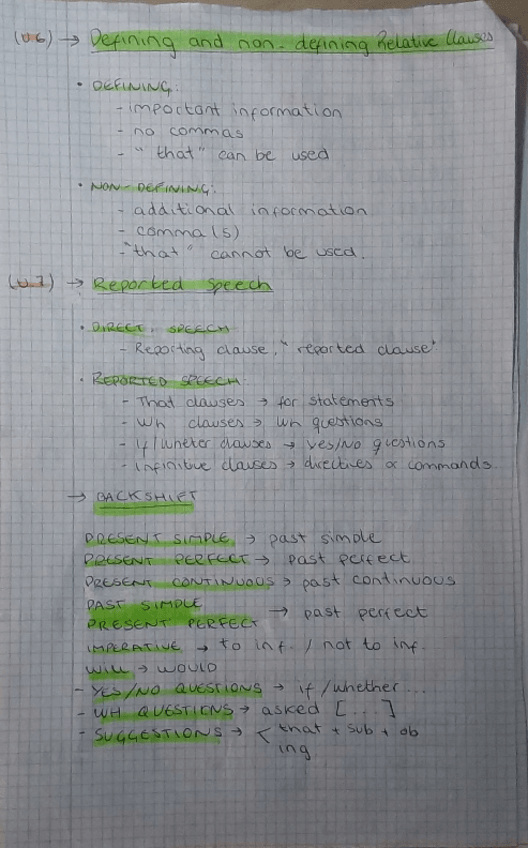 (U.6) → Defining and non-defining Relative Clauses
• DEFINING:
- important information
- no commas
- "that" can be used
• NON-DEFINING:
- additional information
- comma(s)
- "that" cannot be used.
(U.7) → Reported Speech
• DIRECT SPEECH
- Reporting clause, "reported clause"
• REPORTED SPEECH
- That clauses → for statements
- Wh clauses → wh questions
- If/wheter clauses → yes/no questions
- Infinitive clauses → directives or commands
→ BACKSHIFT
PRESENT SIMPLE → past simple
PRESENT PERFECT → past perfect
PRESENT CONTINUOUS → past continuous
PAST SIMPLE
PRESENT PERFECT → past perfect
IMPERATIVE → to inf. / not to inf.
WILL → WOULD
- YES/NO QUESTIONS → if/whether...
- WH QUESTIONS → asked [...]
- SUGGESTIONS → < that + sub + ob
ing